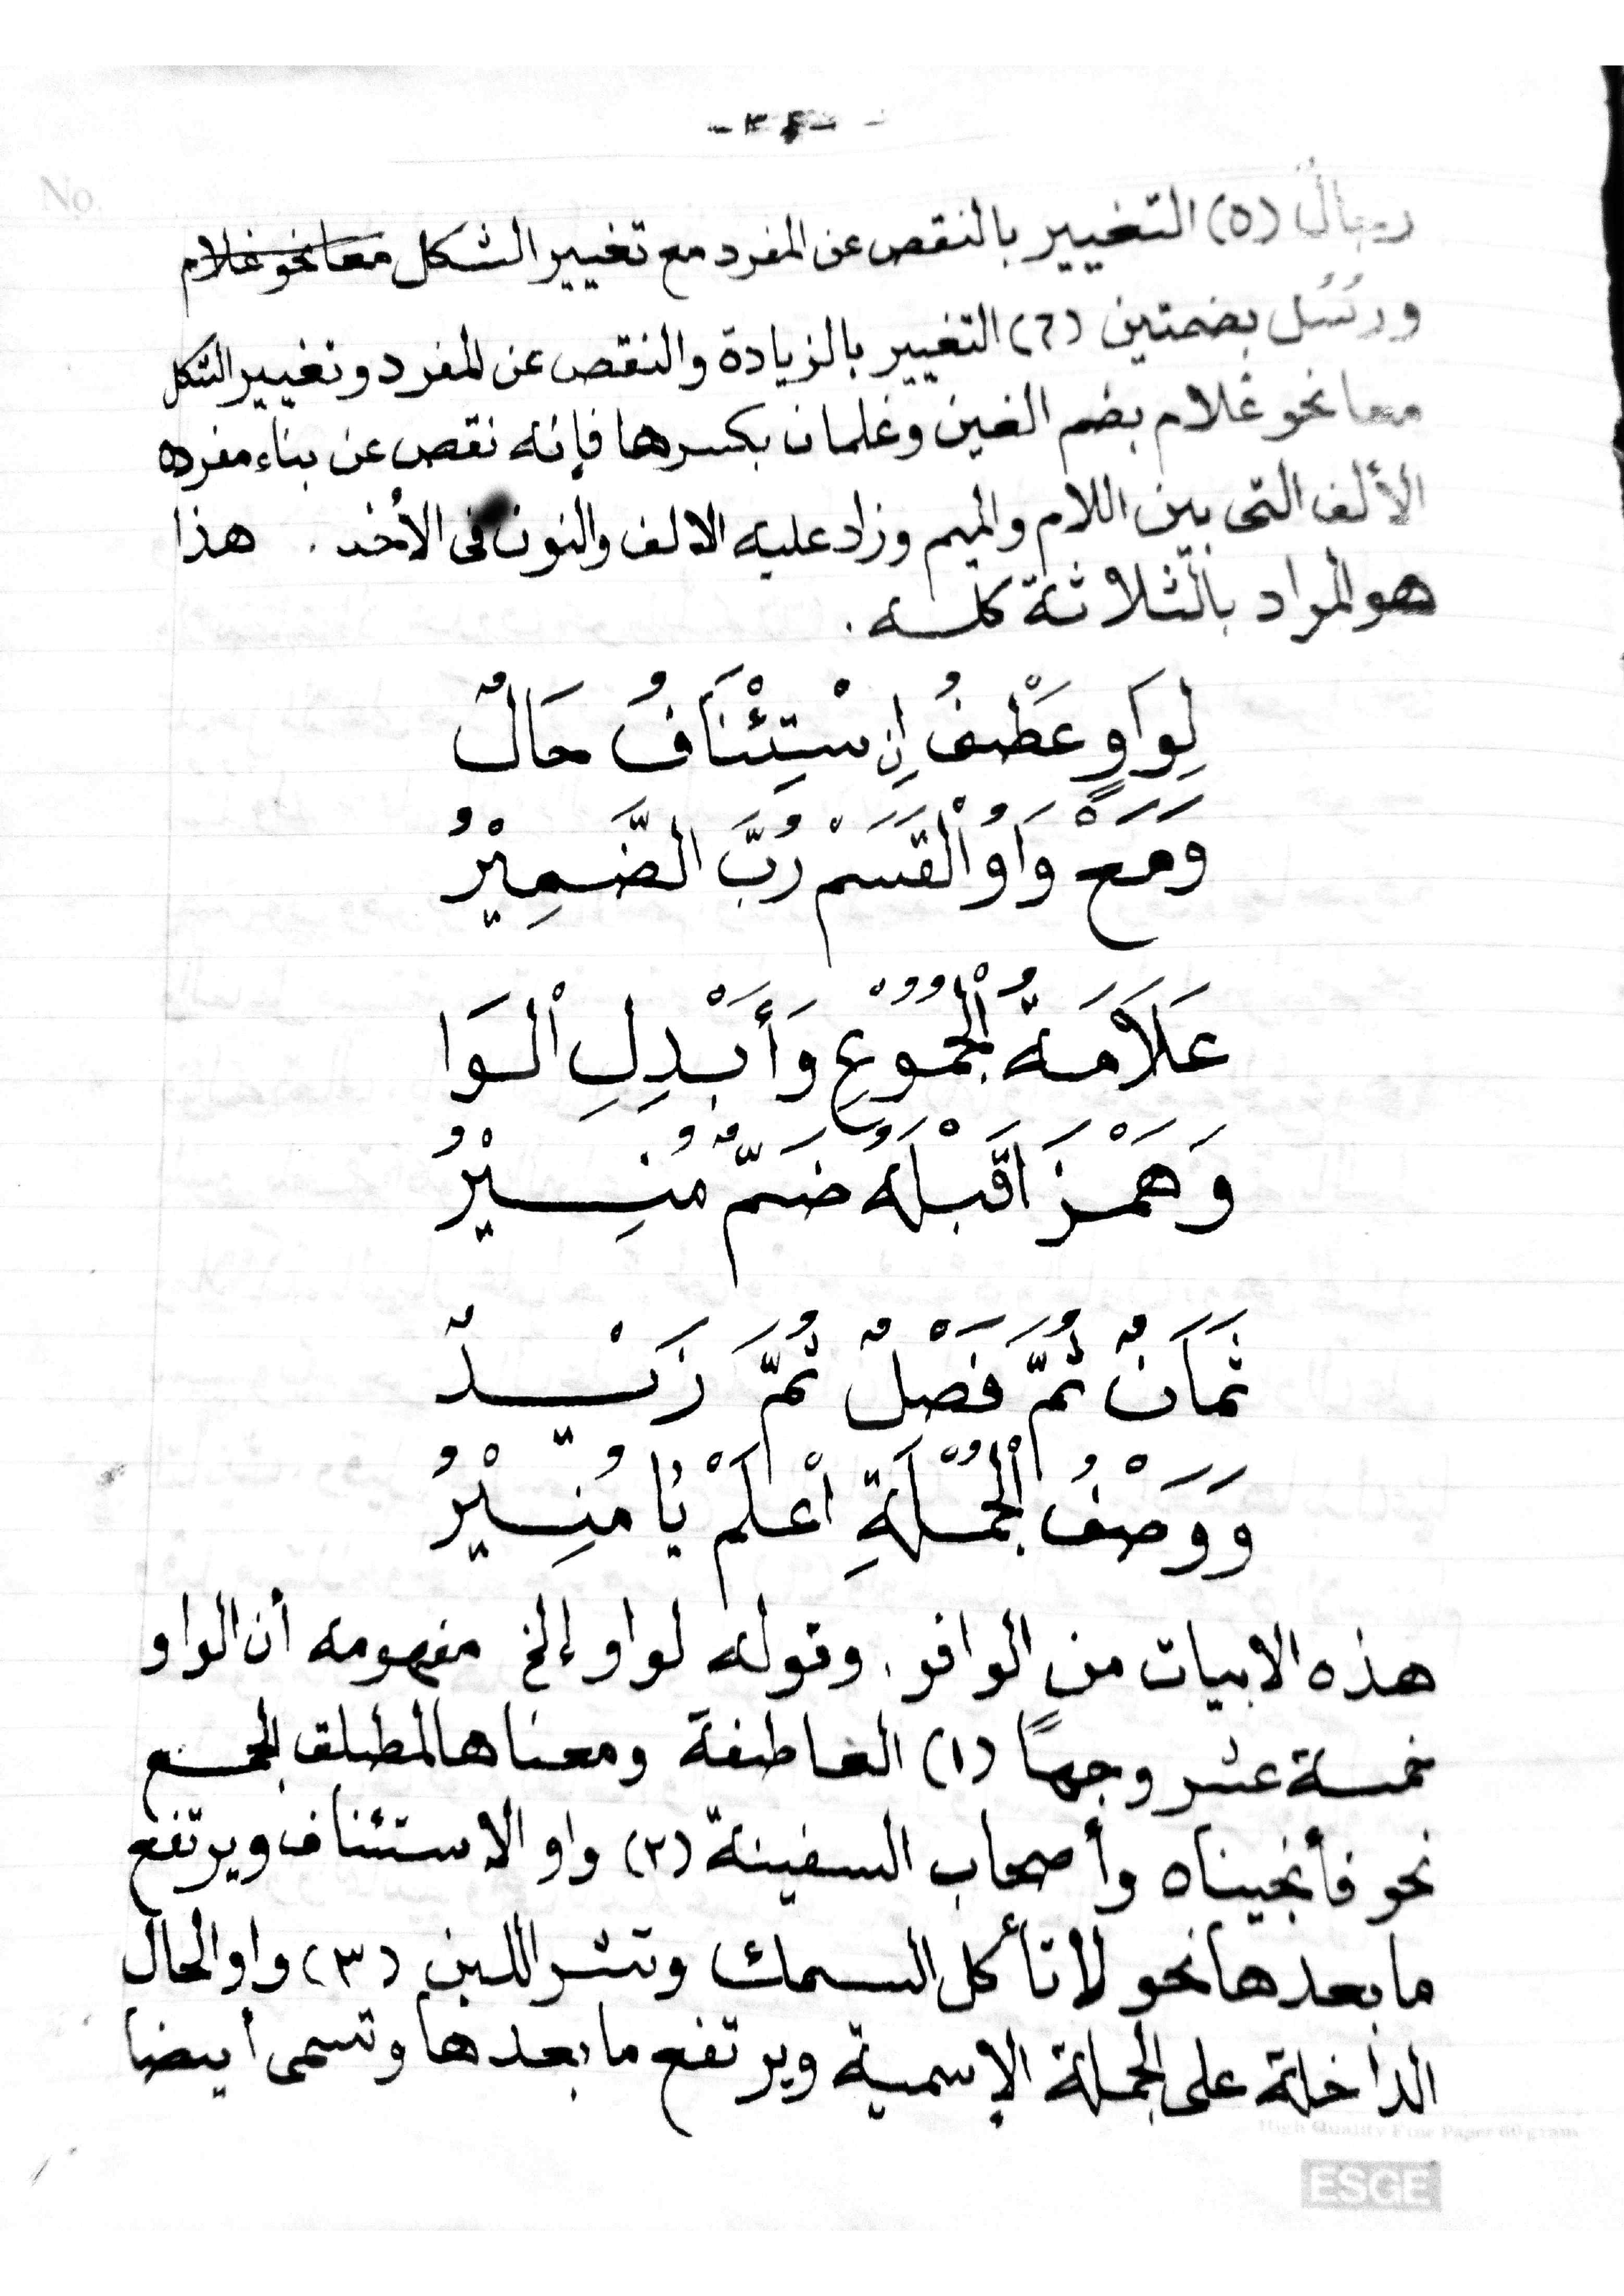 No.
رجالٌ (٥) التغيير بالنقص عن المفرد مع تغيير الشكل معا نحو غلام
ورُسُل بضمتين (٦) التغيير بالزيادة والنقص عن المفرد وتغيير الشكل
معا نحو غلام بضم الغين وغلمان بكسرها فإنه نقص عن بناء مفرده
الألف التى بين اللام والميم وزاد عليه الالف والنون فى الأخد . هذا
هو المراد بالثلاثة كلـــه .
لِوَاوٍ عَطْفُ اِنْ سْتِئْنَافُ حَالٌ
وَمَعْ وَاوُ الْقَسَمْ رُبَّ الضَّمِيْرُ
عَلاَمَةُ الْجُمُوْعِ وَأَبْدِلِ الْوَا
وَهَمْزَ اقَبْلَهُ ضَمٌّ مُنِيْرُ
ثَمَانٌ ثُمَّ فَصْلٌ ثُمَّ زَيْدٌ
وَوَصْفُ الْجُمْلَةِ اعْلَمْ يَا مُنِيْرُ
هذه الابيات من الوافر . وقوله لواو إلخ مفهومه أن الواو
خمسة عشر وجهًا (١) العاطفة ومعناها المطلق الجمع
نحو فأنجيناه وأصحاب السفينة (٢) واو الاستئناف ويرتفع
ما بعدها نحو لا تأكل السمك وتشر اللبن (٣) واو الحال
الداخلة على الجملة الإسمية ويرتفع ما بعدها وتسمى أيضا
High Quality Fine Paper 60 gram
ESGE